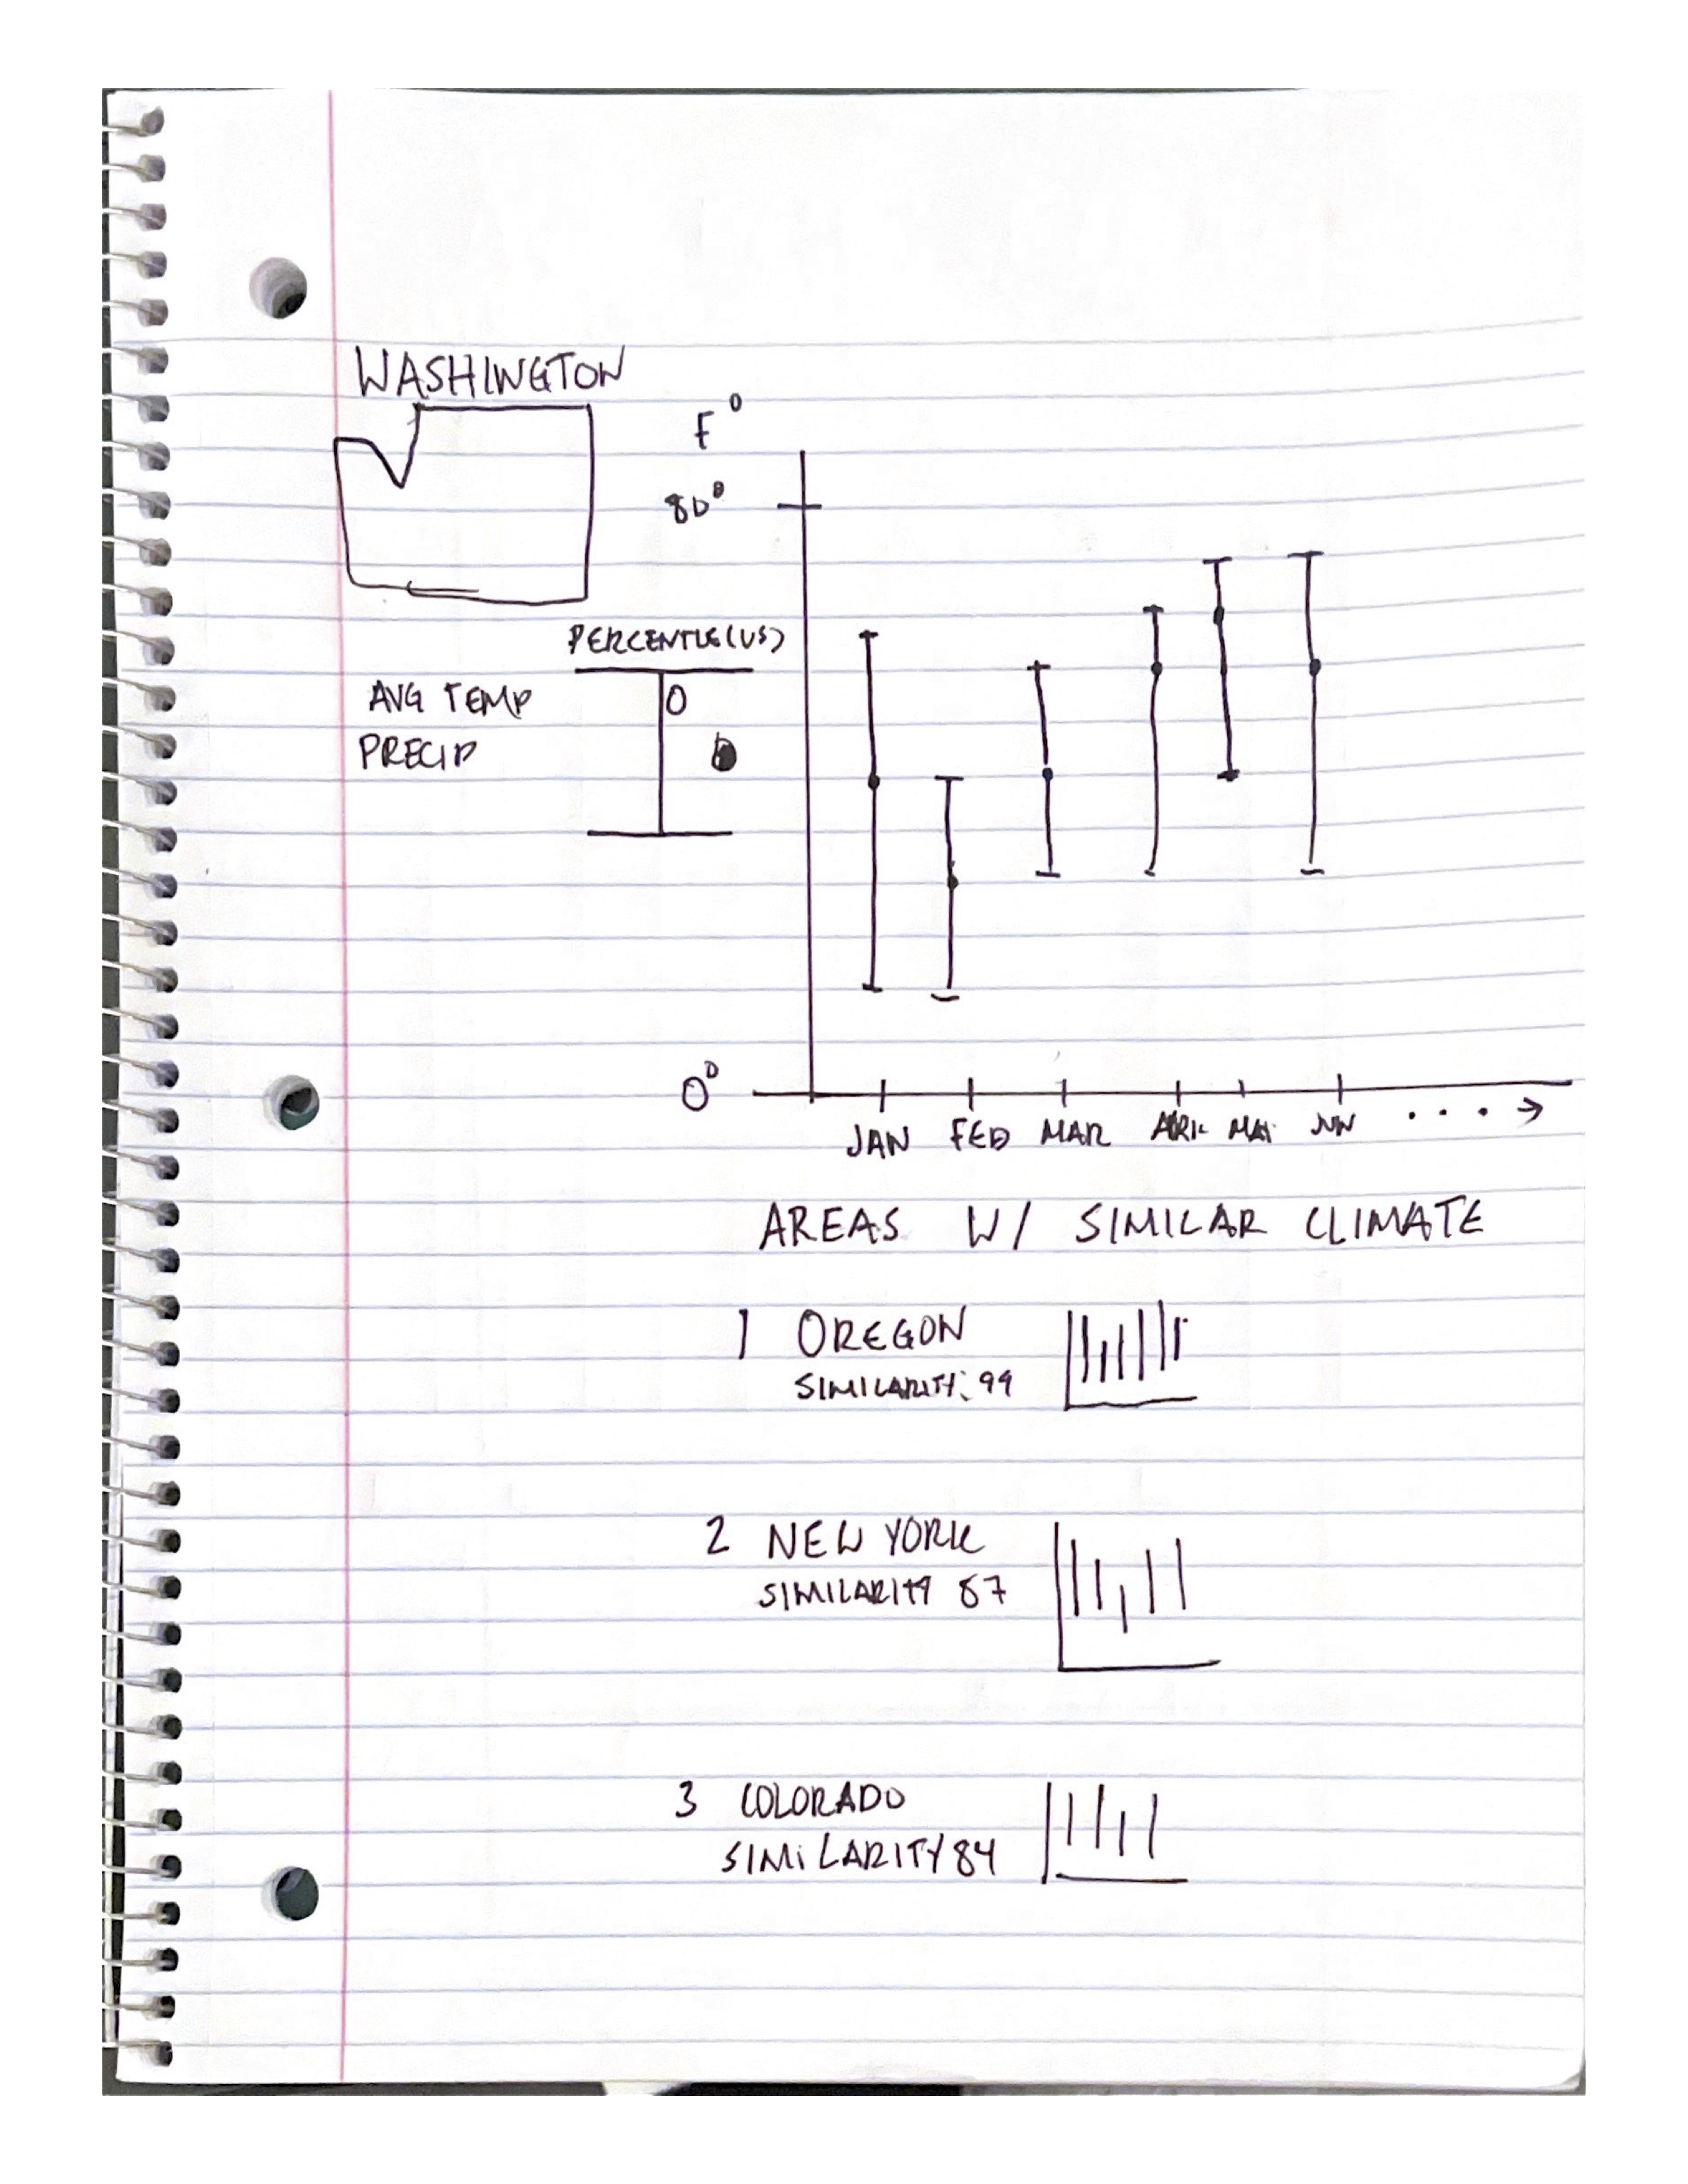 WASHINGTON
F°
80°
PERCENTLE (US)
AVG TEMP
PRECIP
0°
JAN FEB MAR MAY JUN . . . . →
AREAS W/ SIMILAR CLIMATE
1 OREGON
SIMILARITY: 99
2 NEW YORK
SIMILARITY 87
3 COLORADO
SIMILARITY 84